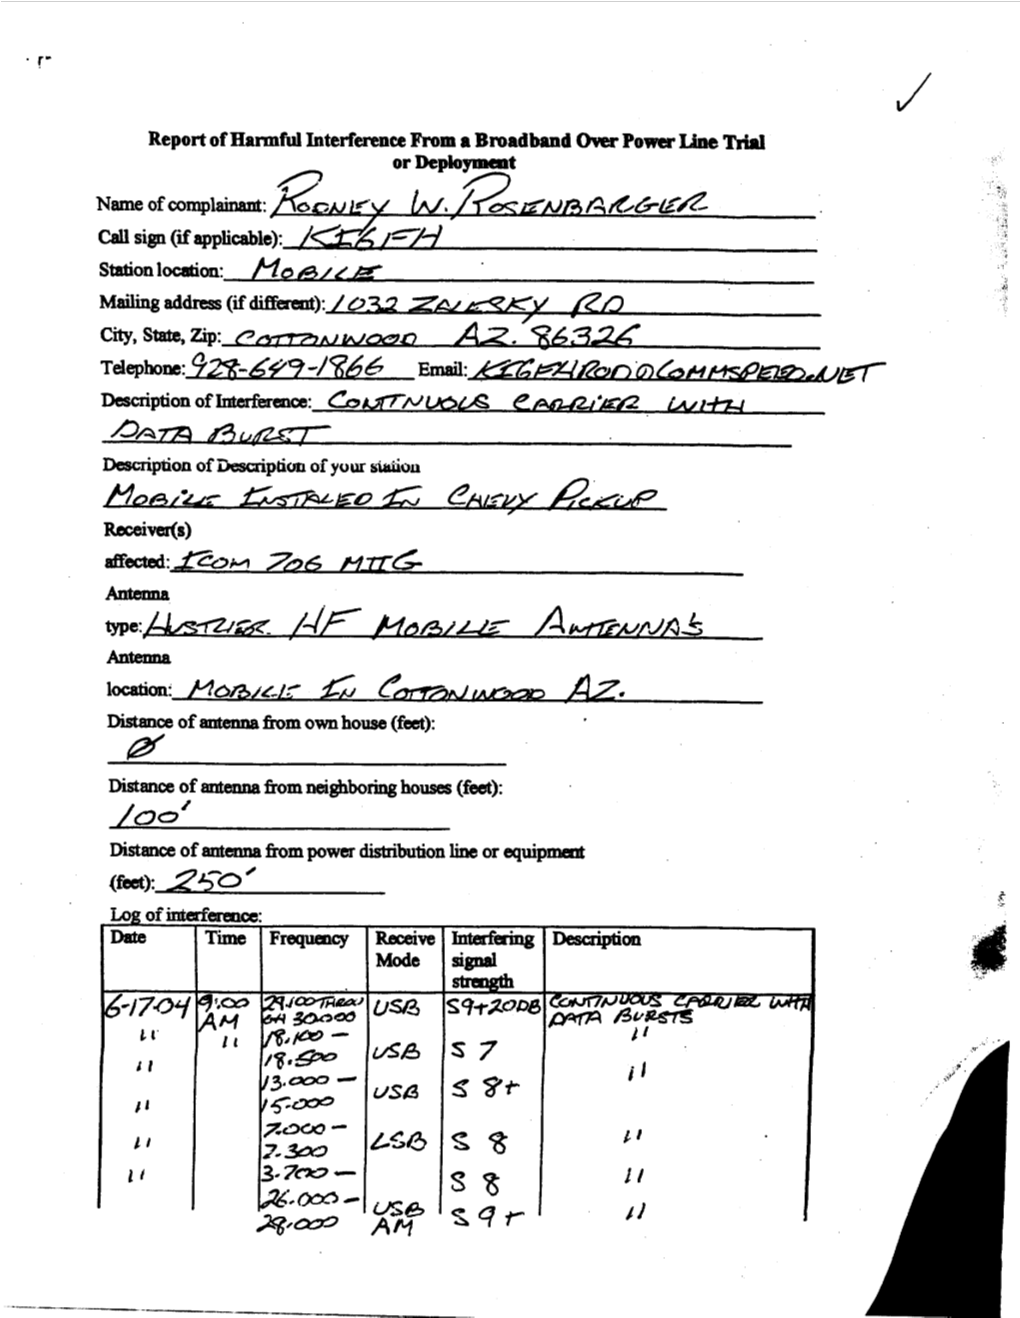 Report of Harmful Interference From a Broadband Over Power Line Trial
or Deployment
Name of complainant: RODNEY W. ROSENBARGER
Call sign (if applicable): KI6FH
Station location: MOBILE
Mailing address (if different): 1032 ZALESKY RD
City, State, Zip: COTTONWOOD AZ. 86326
Telephone: 928-649-1866 Email: KI6FHROD@COMMSPEED.NET
Description of Interference: CONTNUOUS CARRIER WITH
DATA BURST
Description of Description of your station
MOBILE INSTALED IN CHEVY PICKUP
Receiver(s)
affected: ICOM 706 MIIG
Antenna
type: HUSTLER HF MOBILE ANTENNA'S
Antenna
location: MOBILE IN COTTONWOOD AZ.
Distance of antenna from own house (feet):
Ø
Distance of antenna from neighboring houses (feet):
100'
Distance of antenna from power distribution line or equipment
(feet): 250'
Log of interference:
Date Time Frequency Receive Mode Interfering signal strength Description
6-17-04 9:00 AM 29.100 THROU 30.000 USB S9+20DB CONTINUOUS CARRIER WITH DATA BURSTS
" " 18.100 - 18.500 USB S 7 "
" 13.000 - 15.000 USB S 8+ "
" 7.000 - 7.300 LSB S 8 "
" 3.700 - S 8 "
" 26.000 - 28.000 USB AM S 9+ "